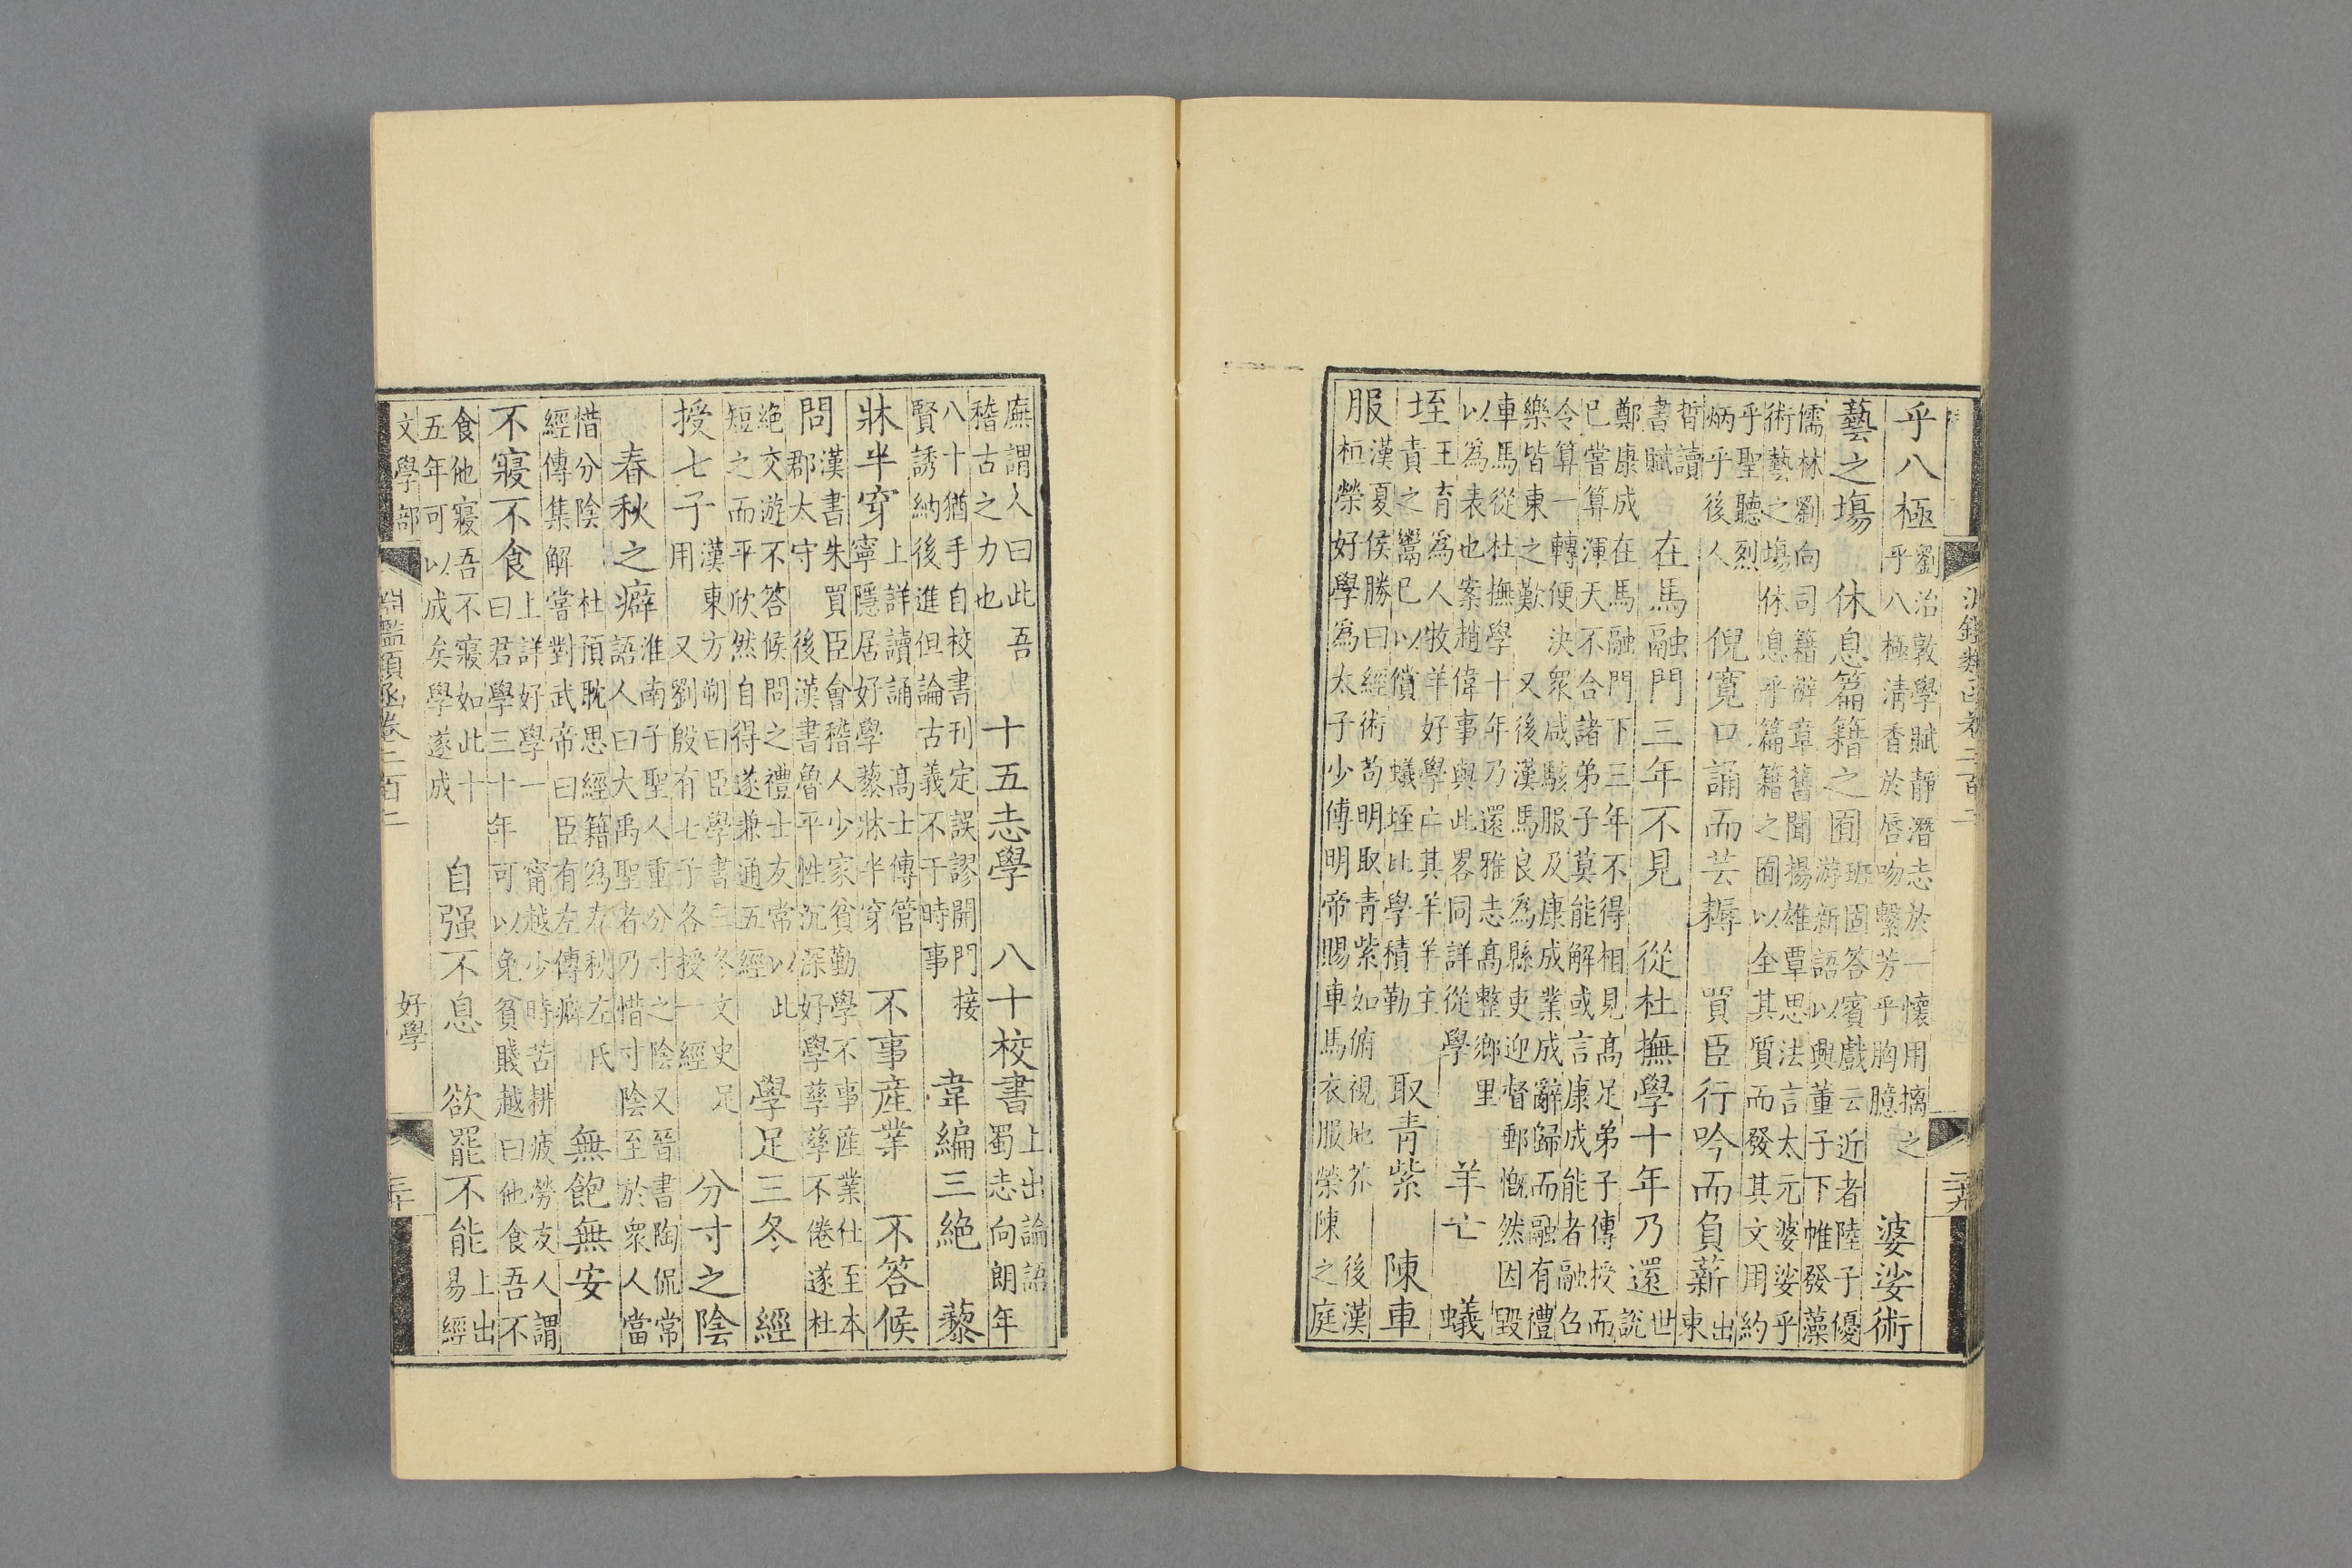 淵鑑類函卷二百二 二十九
乎八極 劉治敦學賦靜潛志於一懷用摛之
乎八極淸香於唇吻繫芳乎胸臆 婆娑術
藝之塲 休息篇籍之囿 班固答賓戲云近者陸子優
游新語以興董子下帷發藻
儒林劉向司籍辨章舊聞揚雄覃思法言太元婆娑乎
術藝之塲休息乎篇籍之囿以全其質而發其文用約
乎聖聽烈
炳乎後人 倪寬口誦而芸耨 買臣行吟而負薪 出
東
晳讀
書賦 在馬融門三年不見 從杜撫學十年乃還 世
說
鄭康成在馬融門下三年不得相見高足弟子傳授而
已嘗算渾天不合諸弟子莫能解或言康成能者融召
令算一轉便決衆咸駭服及康成業成辭歸而融有禮
樂皆東之歎 又後漢馬良爲縣吏迎督郵慨然因毀
車馬從杜撫學十年乃還雅志高整鄉里
以爲表也案趙偉事與此畧同詳從學 羊亡 蟻
垤 王育爲人牧羊好學亡其羊羊主
責之鬻已以償 蟻垤比學積勤 取青紫 陳車
服 漢夏侯勝曰經術苟明取青紫如俯視地芥 後漢
桓榮好學爲太子少傅明帝賜車馬衣服榮陳之庭
廡謂人曰此吾
稽古之力也 十五志學 八十校書 上出論語
蜀志向朗年
八十猶手自校書刊定誤謬開門接
賢誘納後進但論古義不干時事 韋編三絕 藜
牀半穿 上詳讀誦 高士傳管
寧隱居好學藜牀半穿 不事產業 不答候
問 漢書朱買臣會稽人少家貧勤學不事產業仕至本
郡太守 後漢書魯平性沉深好學孳孳不倦遂杜
絶交遊不答候問之禮士友常以此
短之而平欣然自得遂兼通五經 學足三冬 經
授七子 漢東方朔曰臣學書三冬文史足
用 又劉殷有七子各授一經 分寸之陰
春秋之癖 淮南子聖人重分寸之陰又晉書陶侃常
語人曰大禹聖者乃惜寸陰至於衆人當
惜分陰 杜預耽思經籍爲春秋左氏
經傳集解嘗對武帝曰臣有左傳癖 無飽無安
不寢不食 上詳好學一 甯越少時苦耕疲勞友人謂
曰君學三十年可以免貧賤越曰他食吾不
食他寢吾不寢如此十
五年可以成矣學遂成 自强不息 欲罷不能 上出
易經
文學部 淵鑑類函卷二百二 好學 三十